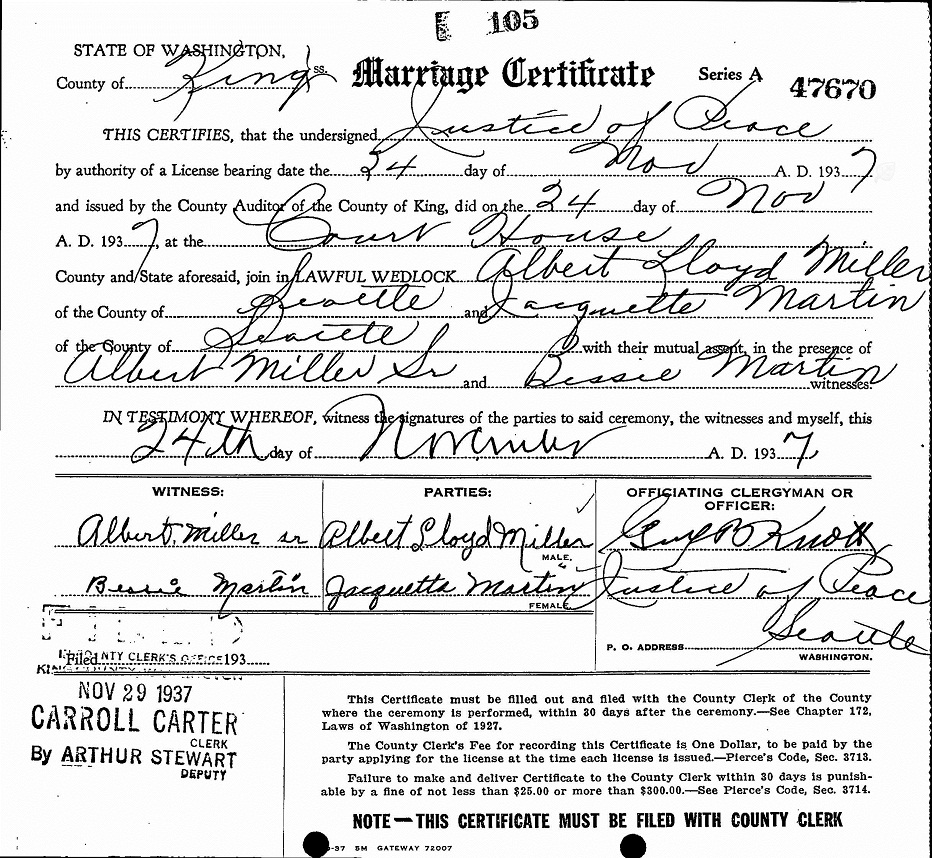 105
STATE OF WASHINGTON,
County of King ss.
Marriage Certificate
Series A 47670
THIS CERTIFIES, that the undersigned Justice of Peace
by authority of a License bearing date the 24 day of Nov A. D. 1937
and issued by the County Auditor of the County of King, did on the 24 day of Nov
A. D. 1937, at the Court House
County and State aforesaid, join in LAWFUL WEDLOCK Albert Lloyd Miller
of the County of Seattle and Jacquette Martin
of the County of Seattle with their mutual assent, in the presence of
Albert Miller Sr and Bessie Martin witnesses.
IN TESTIMONY WHEREOF, witness the signatures of the parties to said ceremony, the witnesses and myself, this
24th day of November A. D. 1937
WITNESS:
Albert Miller sr
Bessie Martin
PARTIES:
Albert Lloyd Miller
MALE.
Jacquetta Martin
FEMALE.
OFFICIATING CLERGYMAN OR
OFFICER:
Guy B Knott
Justice of Peace
Seattle
P. O. ADDRESS
WASHINGTON.
FILED
Filed NTY CLERK'S OFFICE 193
NOV 29 1937
CARROLL CARTER
CLERK
By ARTHUR STEWART
DEPUTY
This Certificate must be filled out and filed with the County Clerk of the County
where the ceremony is performed, within 30 days after the ceremony.—See Chapter 172,
Laws of Washington of 1927.
The County Clerk's Fee for recording this Certificate is One Dollar, to be paid by the
party applying for the license at the time each license is issued.—Pierce's Code, Sec. 3713.
Failure to make and deliver Certificate to the County Clerk within 30 days is punish-
able by a fine of not less than $25.00 or more than $300.00.—See Pierce's Code, Sec. 3714.
NOTE—THIS CERTIFICATE MUST BE FILED WITH COUNTY CLERK
-37 5M GATEWAY 72007